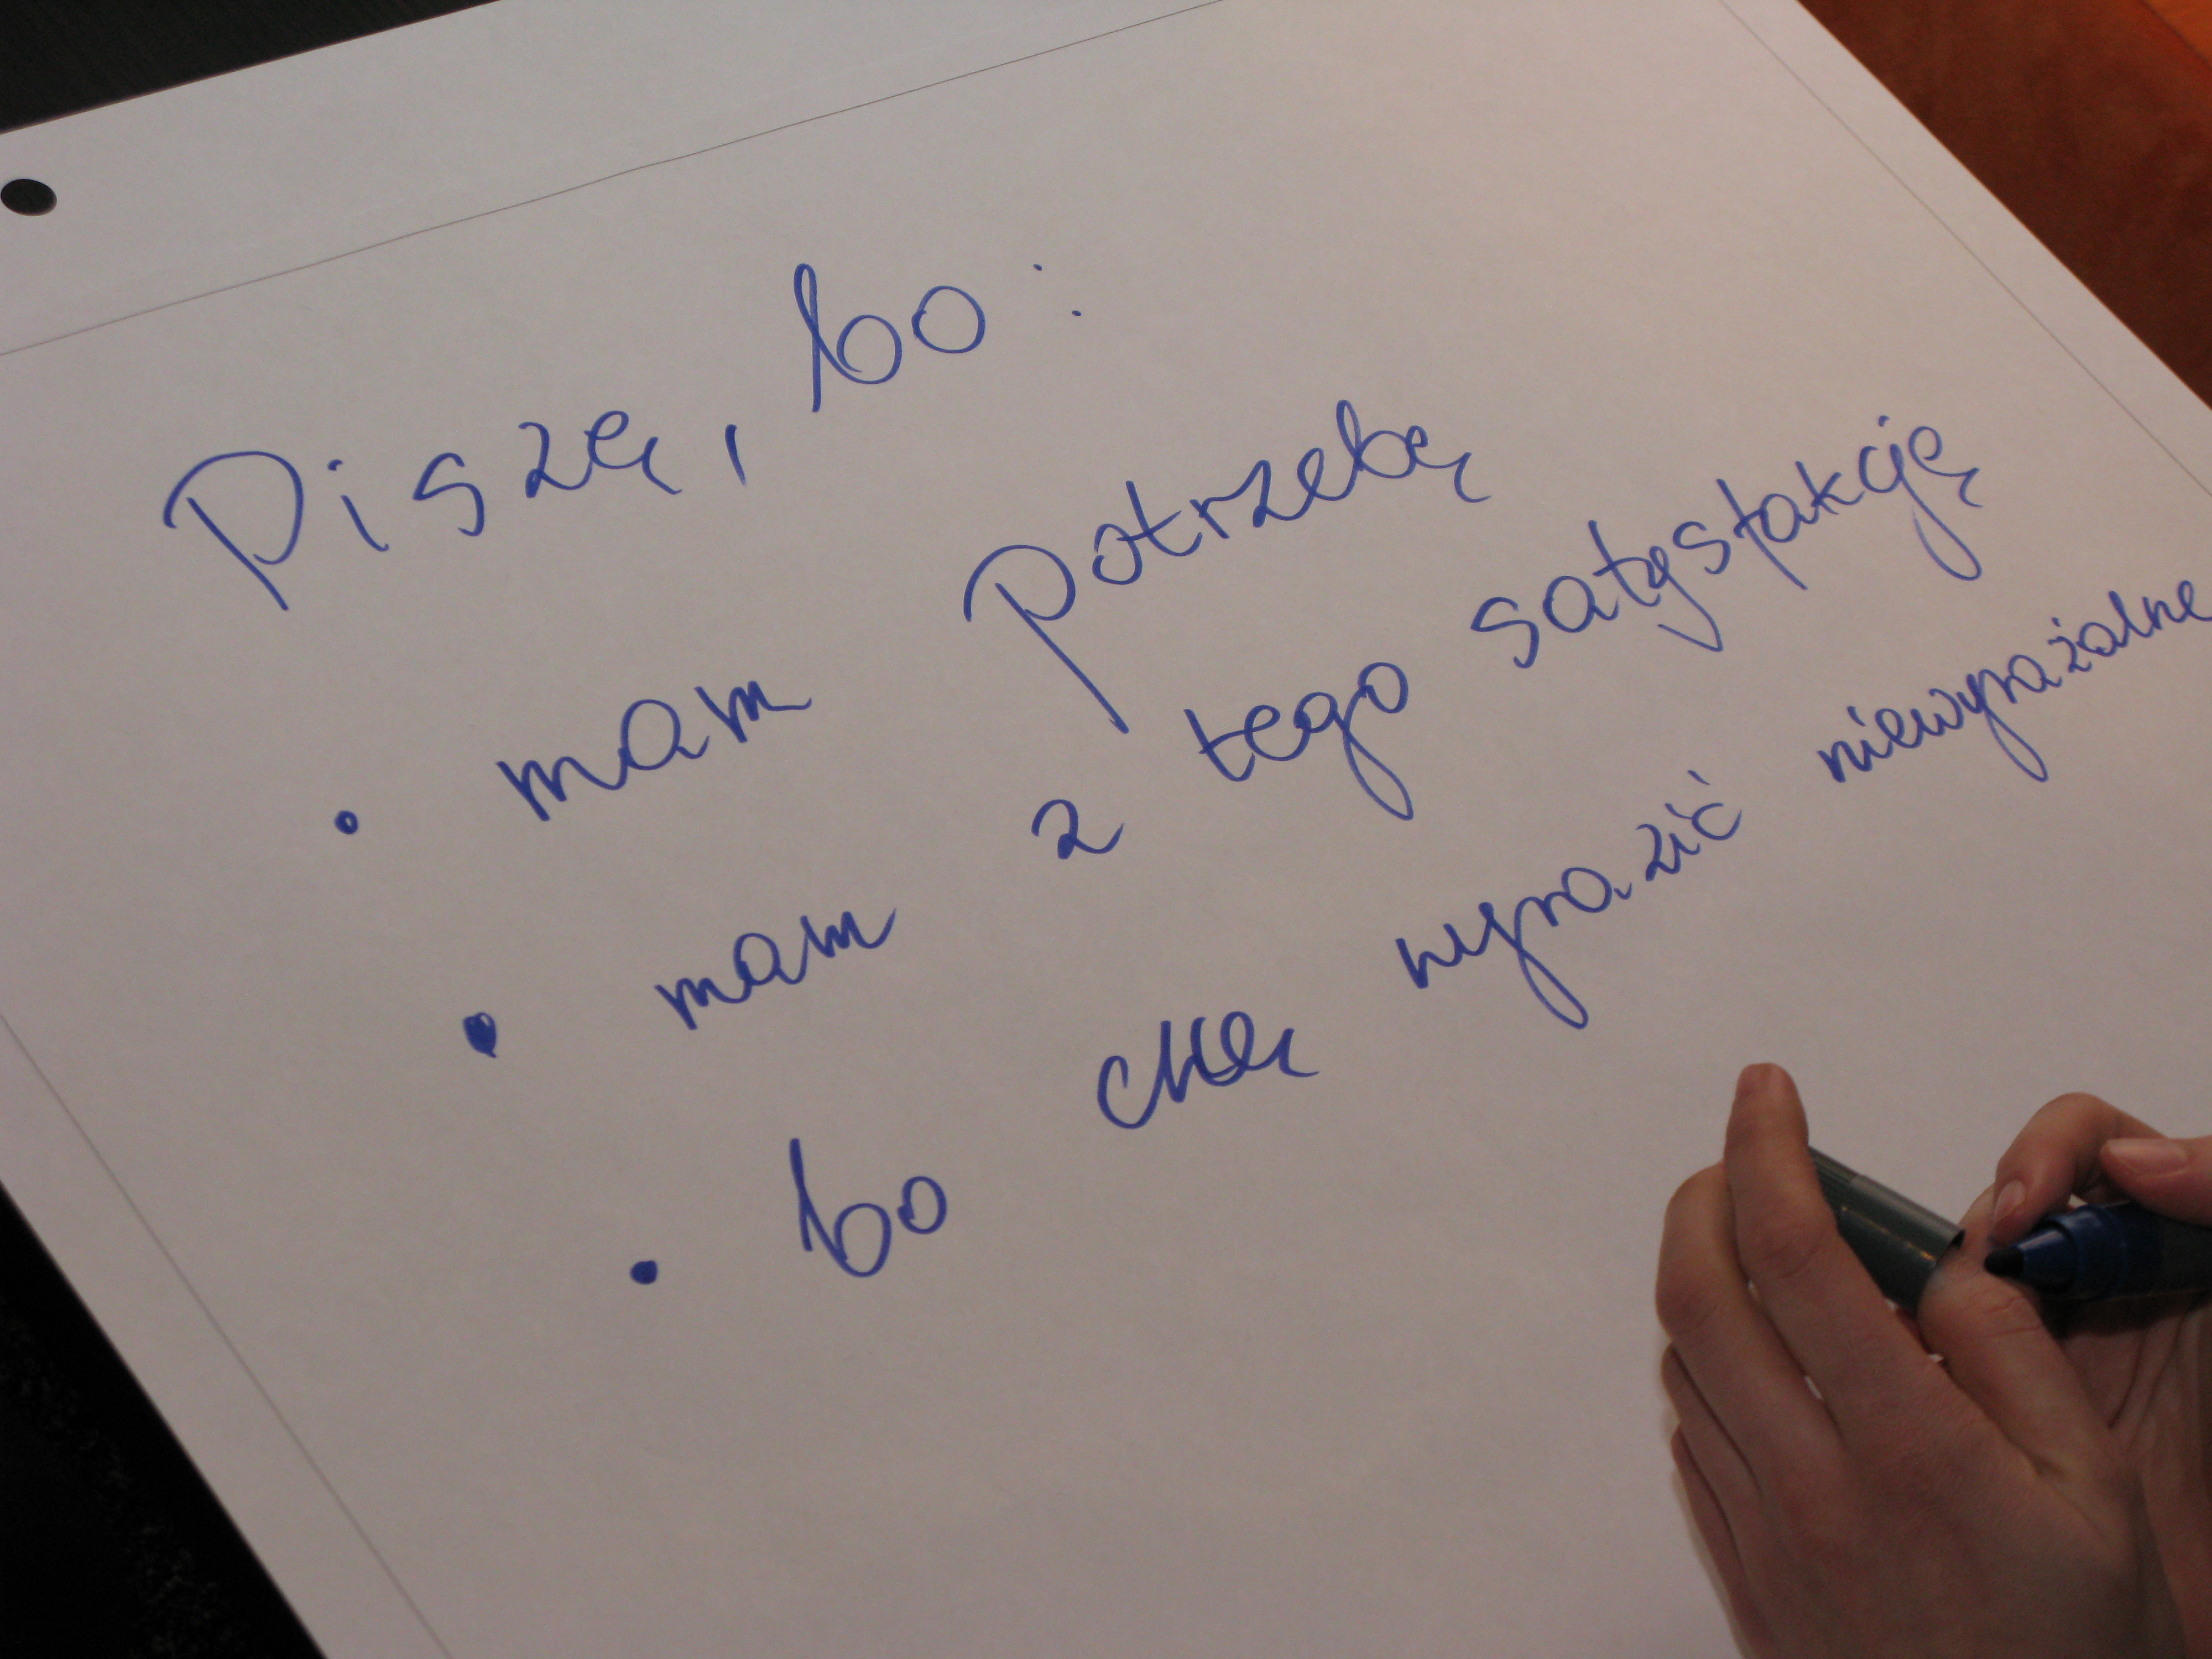 Piszę, bo:
• mam potrzebę
• mam z tego satysfakcję
• bo chcę wyrazić niewyrażalne